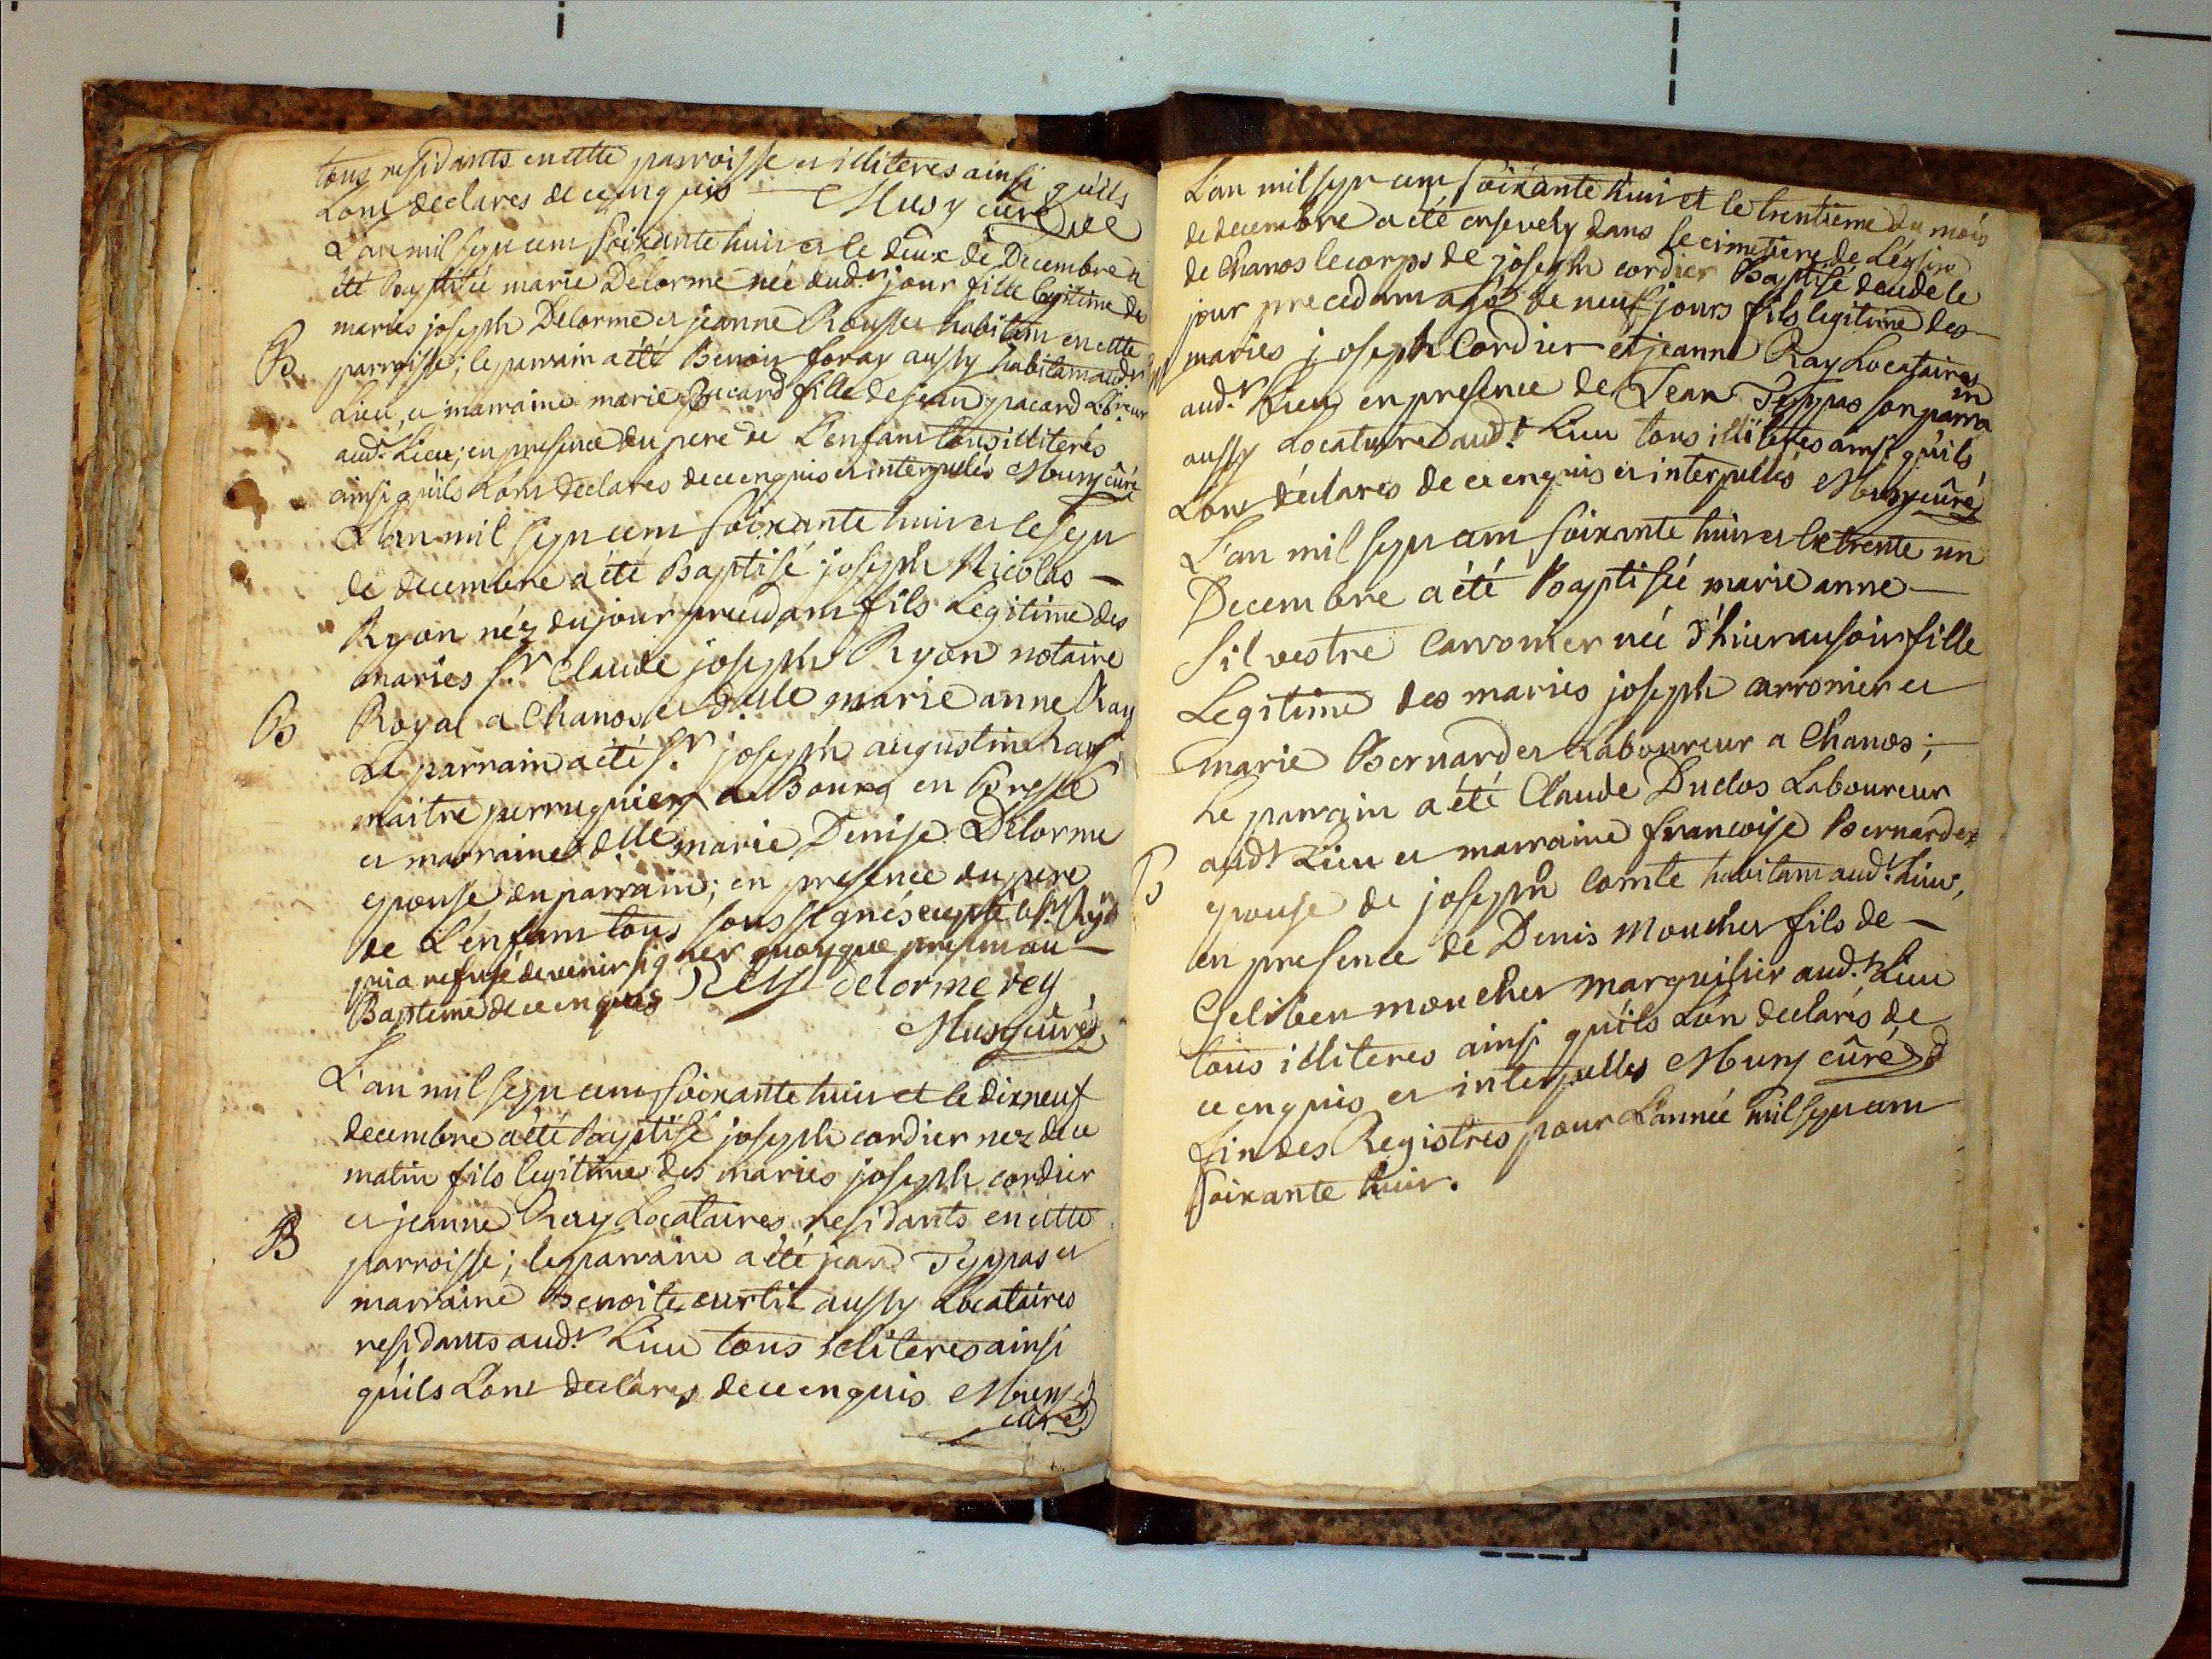 tous residants en cette parroisse et illiteres ainsi qu'ils
L'ont declarés de ce enquis Musy curé
L'an mil sept cent soixante huit et le deux de Decembre a
été baptisée marie Delorme née dud.t jour fille legitime des
mariés joseph Delorme et jeanne Rousset habitant en cette
B
parroisse; le parrain a été Benoit foray aussy habitant aud.t
Lieu, et marraine marie pacard fille de jean pacard Lbreur
aud.t Lieu; en presence du pere de L'enfant tous illiteres
ainsi qu'ils L'ont declarés de ce enquis et interpellés Musy cûré
L'an mil sept cent soixante huit et le sept
de decembre a été Baptisé joseph Nicolas
Ryon néz du jour precedant fils Legitime des
mariés s.r Claude joseph Ryon notaire
B
Royal a Chanos et d.lle marie anne Ray
Le parrain a été s.r joseph augustin Ray
maitre perruquier a Bourg en Bresse
et marraine d.lle marie Denise Delorme
epouse du parrain; en presence du pere
de L'enfant tous soussignés excepté le s.r Ryon
qui a refusé de venir signer quoyque present au
Baptême de ce enquis Rey delorme rey
Musy cûré
L'an mil sept cent soixante huit et le dixneuf
decembre a été baptisé joseph cordier nez de ce
matin fils legitime des mariés joseph cordier
et jeanne Ray Locataires residants en cette
B
parroisse; le parraine a été jean Teppas et
marraine Benoite curtil aussy Locataires
residants aud.t Lieu tous illiteres ainsi
qu'ils L'ont declarés de ce enquis Musy
curé
L'an mil sept cent soixante huit et le trentieme du mois
de decembre a été ensevely dans le cimetiere de L'eglise
de Chanos le corps de joseph cordier Baptisé decedé le
jour precedant agé de neuf jours fils legitime des
mariés joseph Cordier et jeanne Ray Locataires
aud.t Lieu en presence de Jean Teppas son parrain
aussy Locataire aud.t Lieu tous illiteres ainsi qu'ils
L'ont déclarés de ce enquis et interpellés Musy cûré
L'an mil sept cent soixante huit et le trente un
Decembre a été Baptisée marie anne
Silvestre Carronier née d'hier au soir fille
Legitime des mariés joseph carronier et
marie Bernardet Laboureur a Chanos;
Le parrain a été Claude Duclos Laboureur
B
aud.t Lieu et marraine francoise Bernardet
epouse de joseph Comte habitant aud.t Lieu,
en presence de Denis Moucher fils de
Philibert moucher marguilier aud.t Lieu
tous illiteres ainsi qu'ils L'on declarés de
ce enquis et interpellés Musy cûré
fin des Registres pour L'année mil sept cent
soixante huit.